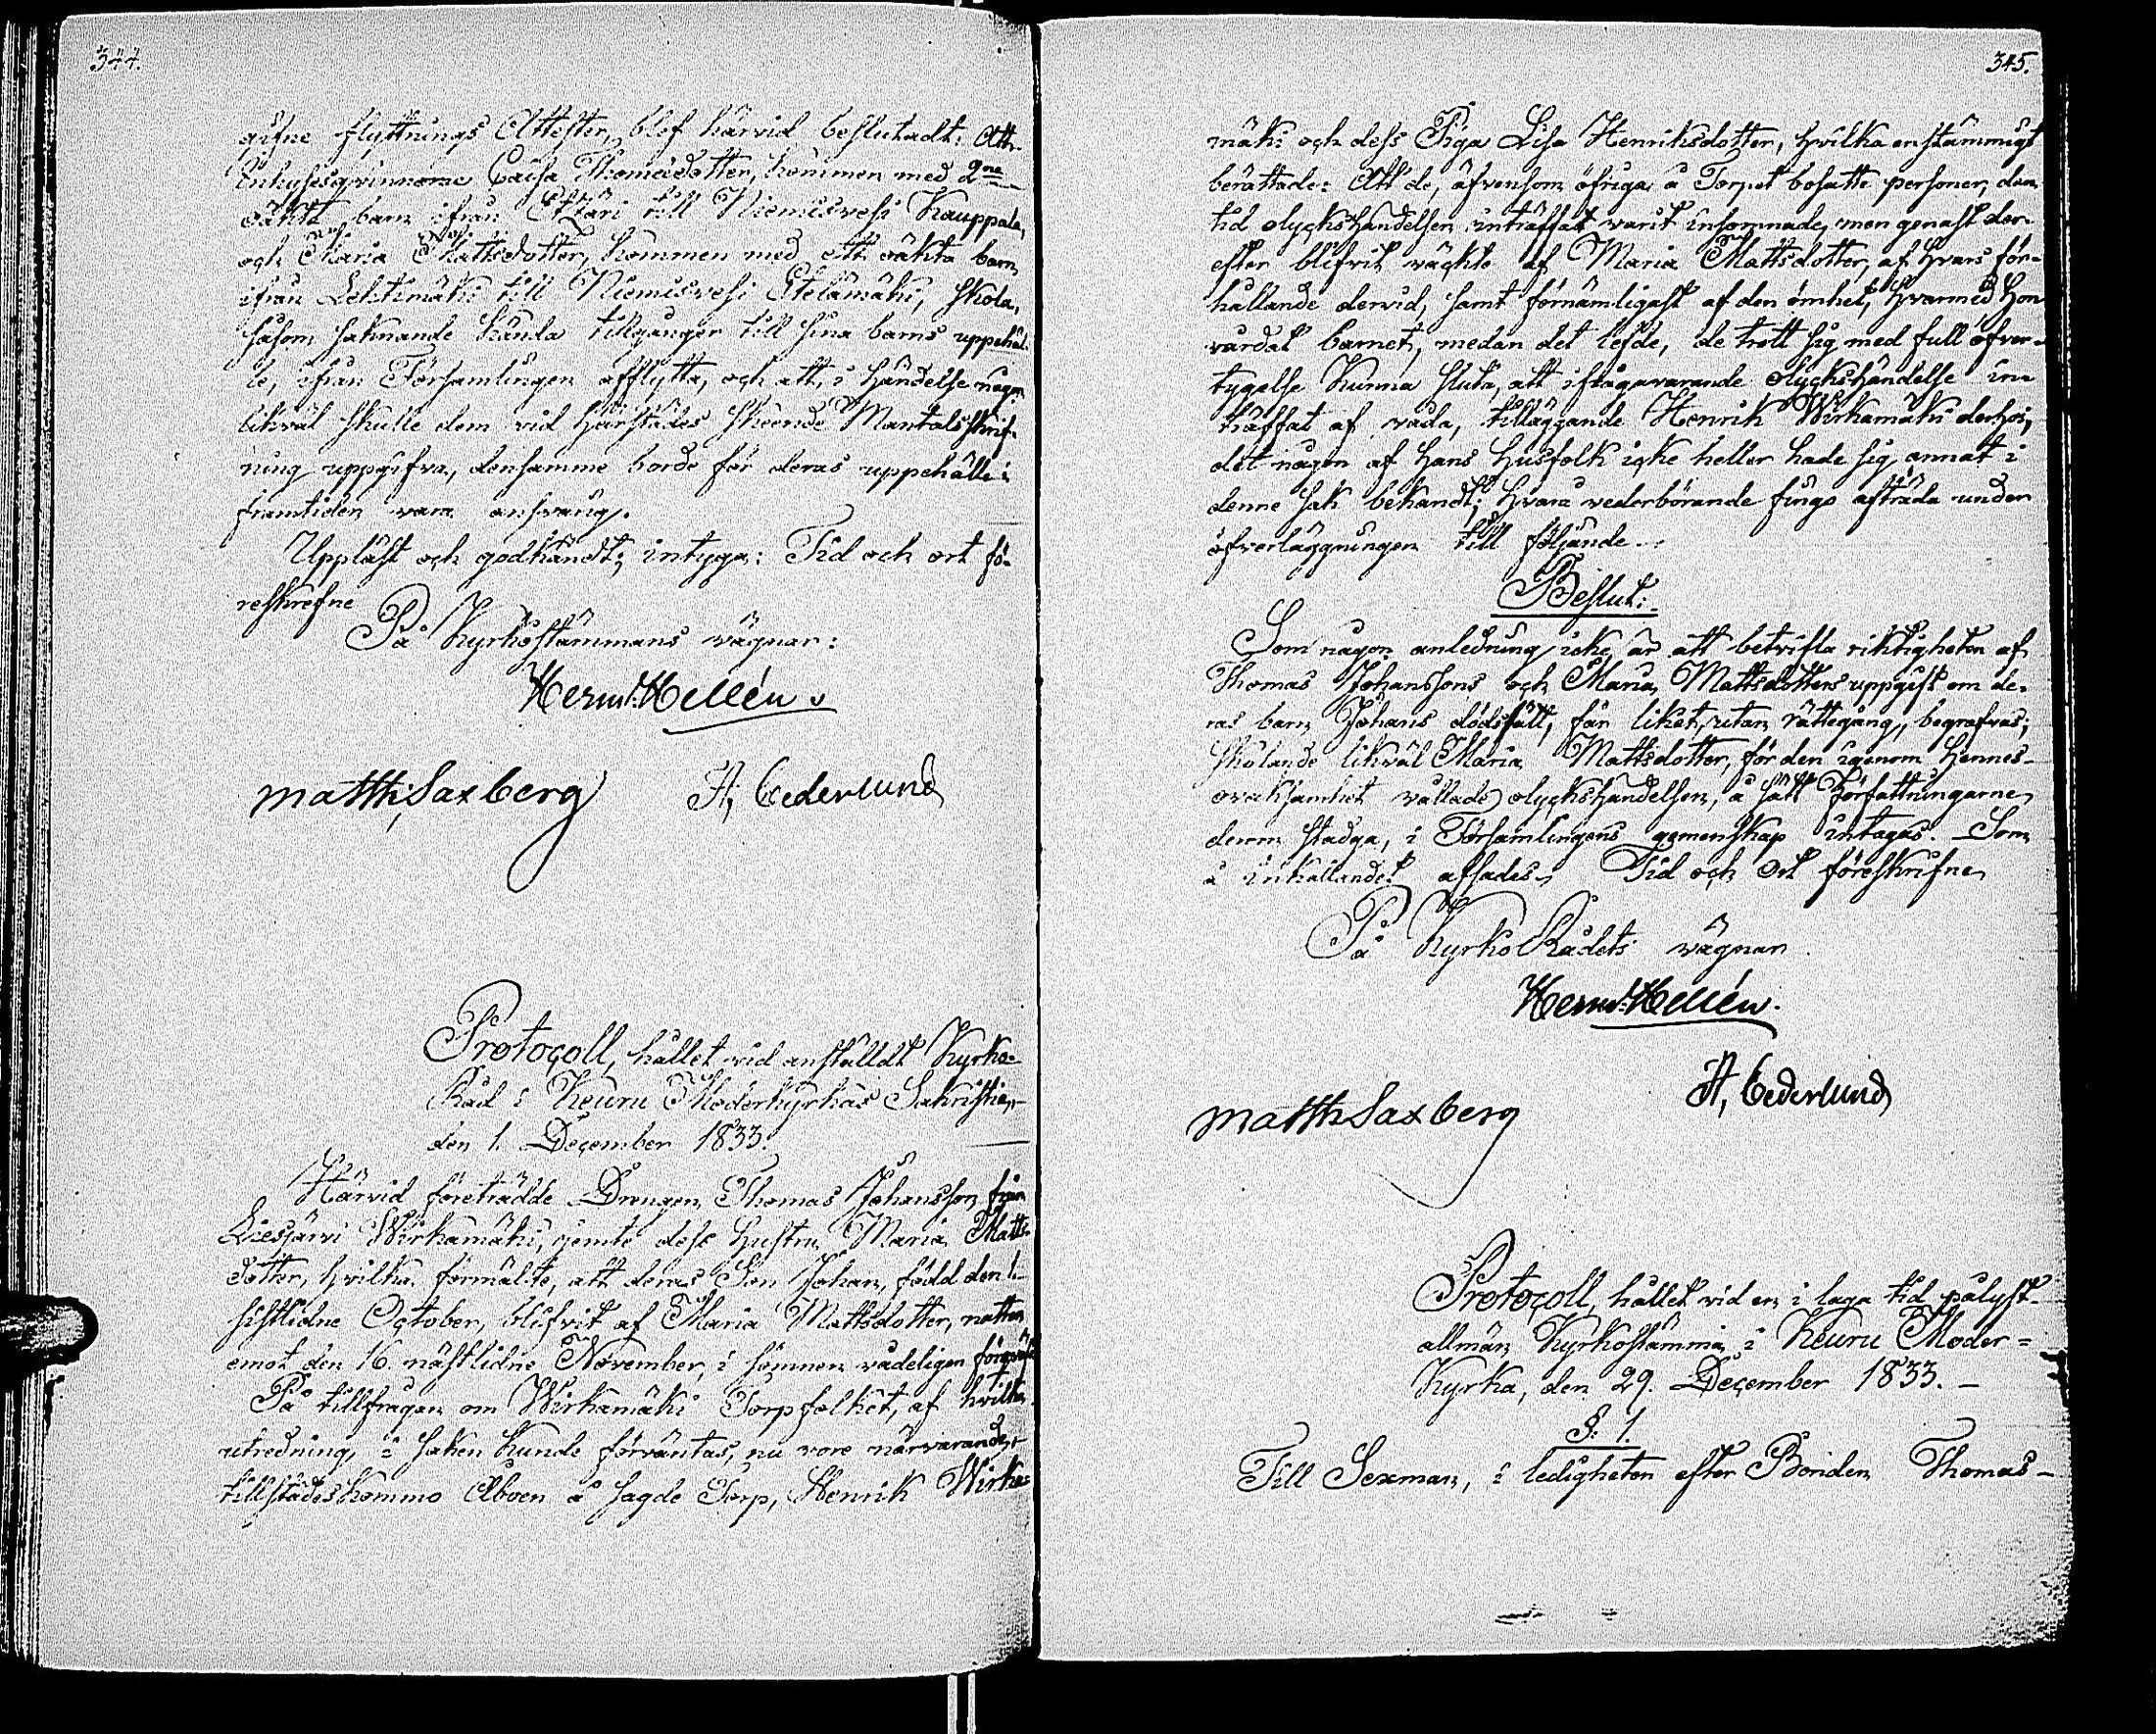 344.
gifne flyttnings Attester, blef härvid beslutadt: Att
Inhysesqvinnorne Caisa Thomasdotter, kommen med 2ne
oäkta barn ifrån Etseri till Niemisvesi Kauppala,
och Maria Mattsdotter, kommen med ett oäkta barn
ifrån Lehtimäki till Niemisvesi Etelämäki, skola,
såsom saknande kända tillgångar till sina barns uppehäl-
le, ifrån Församlingen afflytta, och att, i händelse någon
likväl skulle dem vid härstädes skeende Mantalsskrif-
ning uppgifva, densamme borde för deras uppehälle i
framtiden vara ansvarig.
Uppläst och godkändt; intyga: Tid och ort fö-
reskrefne
På Kyrkostämmans vägnar:
Herm: Hellén.
Matth: Saxberg A, Cederlund
Protocoll, hållet vid anställdt Kyrko-
Råd i Keuru Moderkyrkas Sakristia,
den 1. December 1833.
Härvid företrädde Drängen Thomas Johansson från
Liesjärvi Wirkamäki, jemte dess Hustru Maria Matts-
dotter, hvilka förmälte, att deras Son Johan, född den 1.
sistlidne October, blifvit af Maria Mattsdotter, natten
emot den 16. nästlidne November, i sömnen vådeligen förqväfd
På tillfrågan om Wirkamäki Torpfolket, af hvilka
utredning i saken kunde förväntas, nu vore närvarande,
tillstädeskommo Åboen å sagde Torp, Henrik Wirka-
345.
mäki och dess Piga Lisa Henriksdotter, hvilka enstämmigt
berättade: Att de, äfvensom öfriga å Torpet bosatte personer, den
tid olyckshändelsen inträffat varit insomnade, men genast der-
efter blifvit väckte af Maria Mattsdotter, af hvars för-
hållande dervid, samt förnämligast af den ömhet, hvarmed hon
vårdat barnet, medan det lefde, de trott sig med full öfver-
tygelse kunna sluta, att ifrågavarande olyckshändelse in-
träffat af våda, tilläggande Henrik Wirkamäki derhos,
det någon af hans husfolk icke heller hade sig annat i
denne sak bekandt; hvarå vederbörande fingo afträda under
öfverläggningen till följande.
Beslut:
Som någon anledning icke är att betvifla riktigheten af
Thomas Johanssons och Maria Mattsdotters uppgift om de-
ras barn Johans dödsfall, får liket, utan rättegång, begrafvas;
skolande likväl Maria Mattsdotter, för den igenom hennes
ovaksamhet vållade olyckshändelsen, å sätt Författningarne
derom stadga, i Församlingens gemenskap intagas. Som
å inkallandet afsades. Tid och Ort föreskrifne
På KyrkoRådets vägnar
Herm: Hellén.
A, Cederlund
Matth Saxberg
Protocoll, hållet vid en i laga tid pålyst
allmän Kyrkostämma i Keuru Moder=
Kyrka, den 29. December 1833.
§. 1.
Till Sexman, i ledigheten efter Bonden Thomas